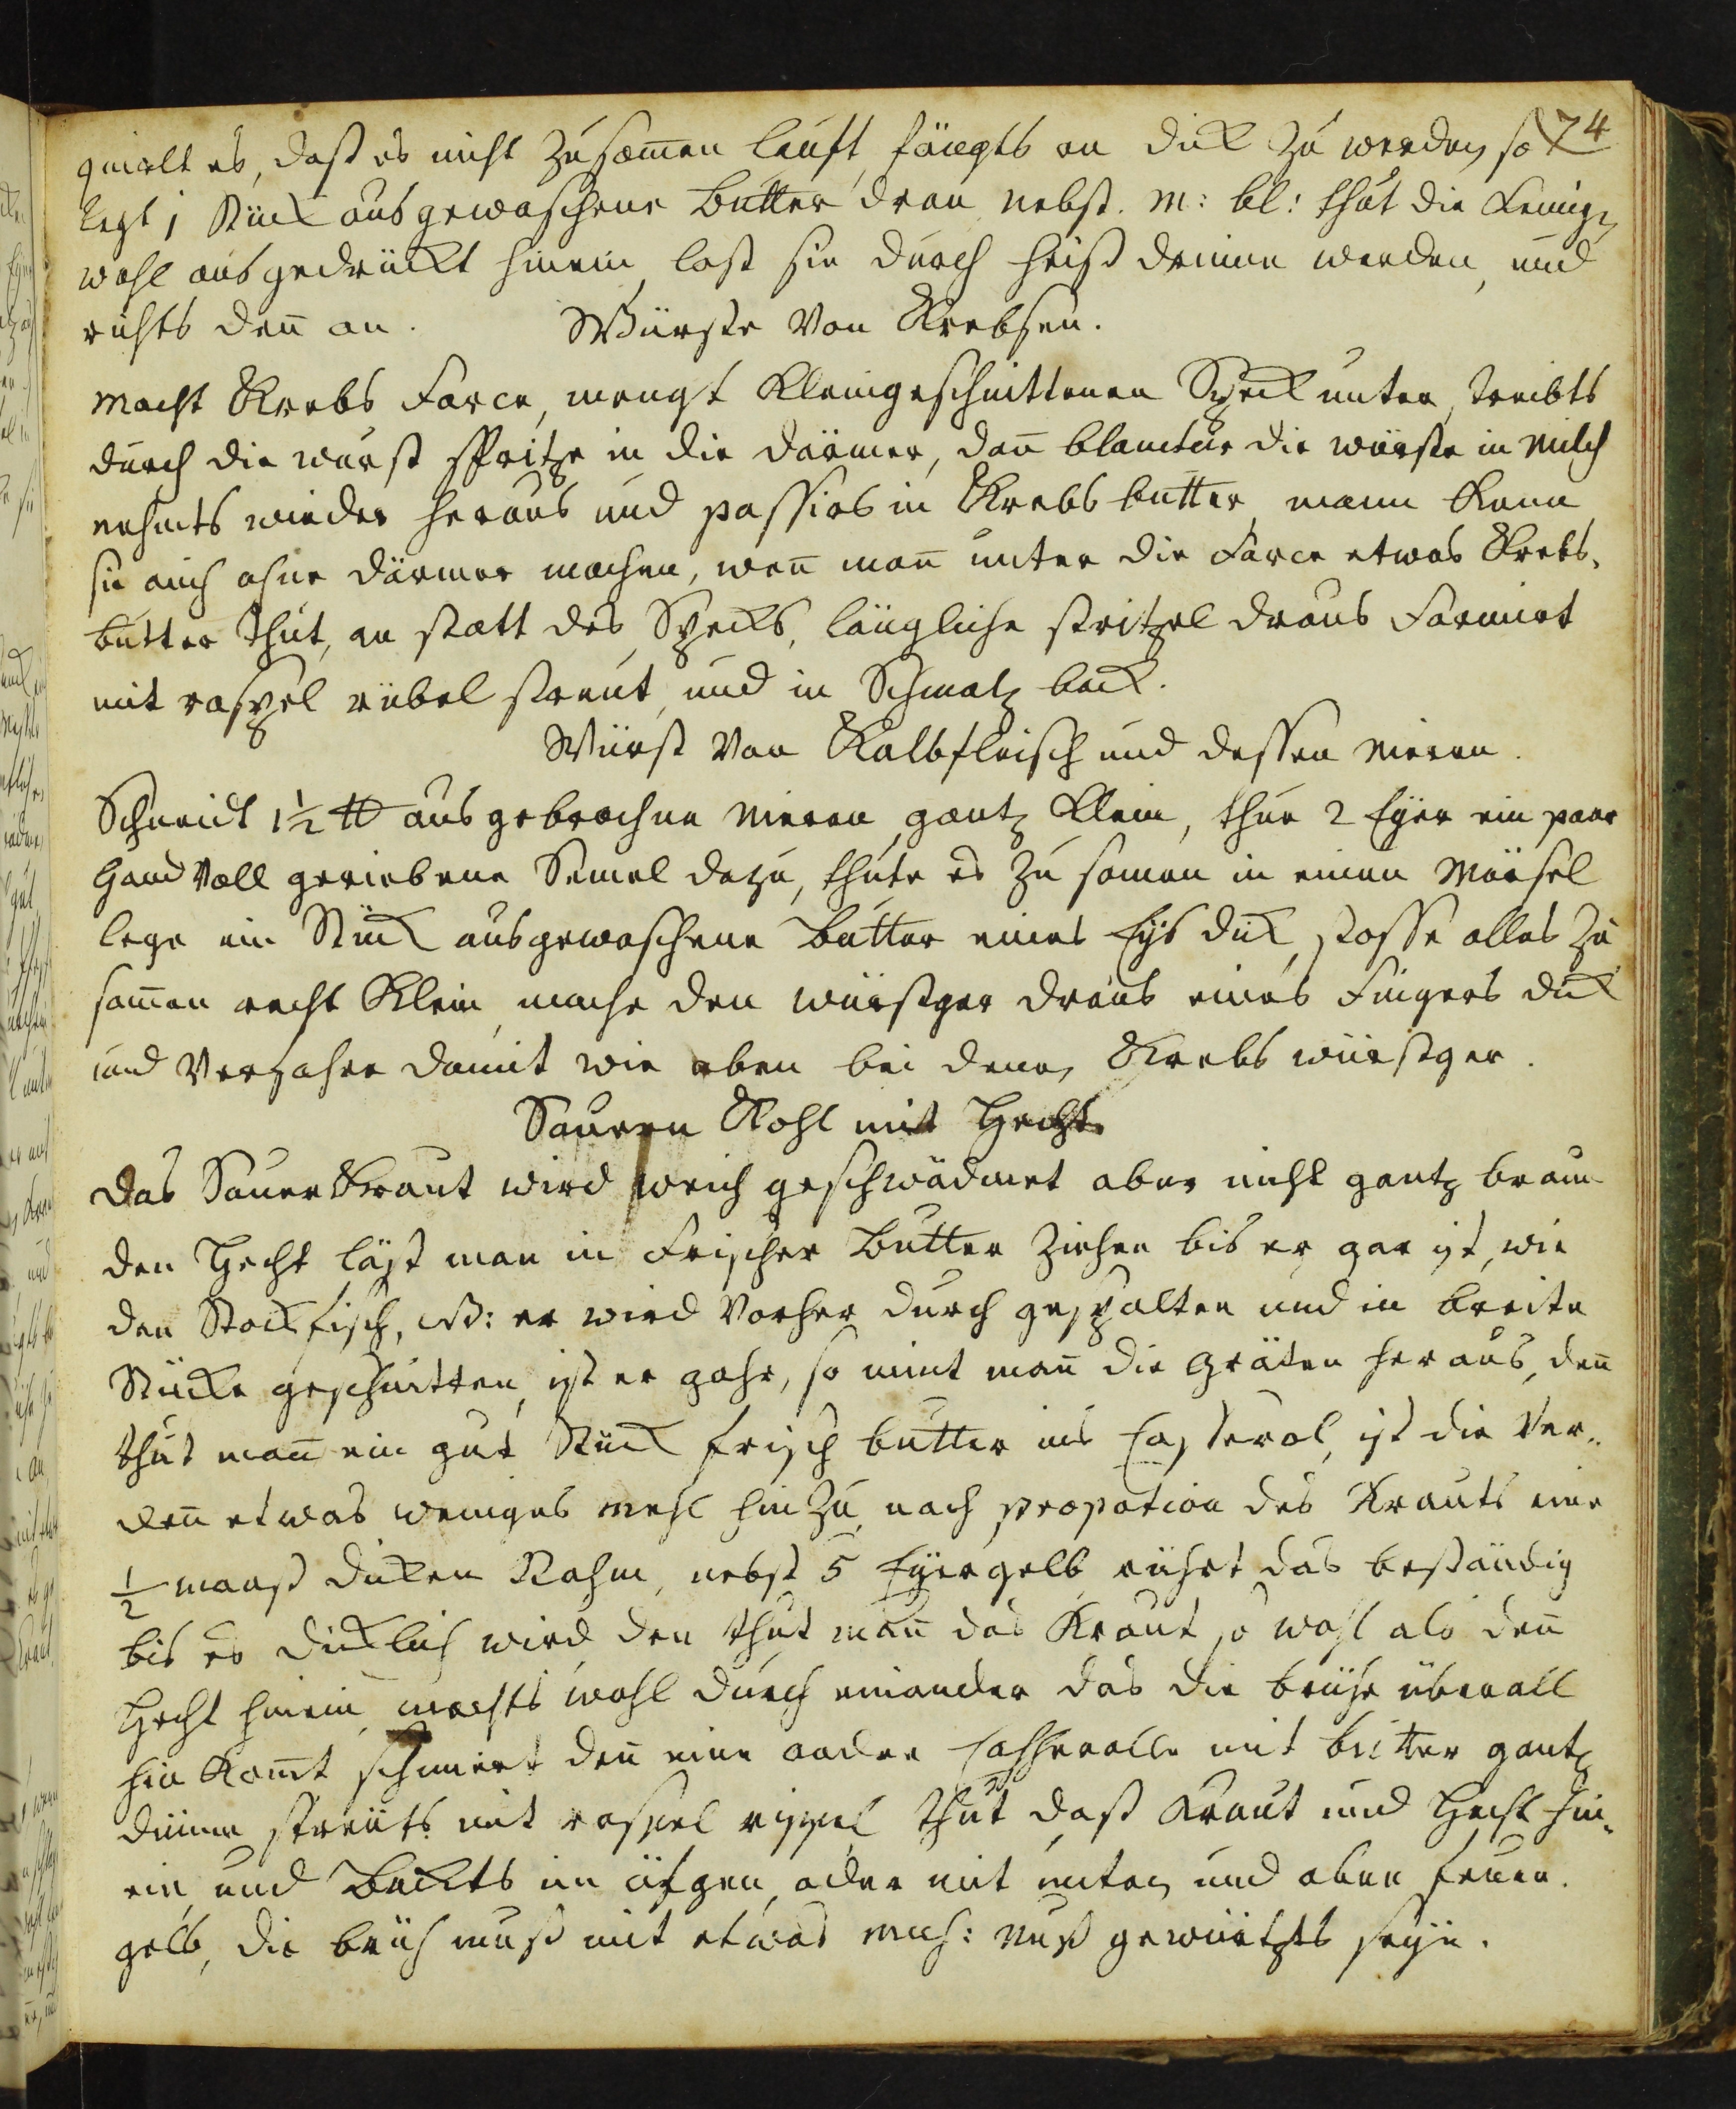 74
quirlt es, daß es nicht zusam̄en läuft, fängts an dick zu werden, so
legt 1 Stück ausgewaschene Butter dran nebst. M: bl: thut die
wohl ausgedrückt hinein, last sie durch heiß drinne werden, und
richts den̄ an. Würste Von Krebsen.
Macht Krebs Farce, mengt Kleingeschnittenen Speck unter, treibts
durch die wurst spritze in die därmer, dan̄ die würste in Milch
nehmts wieder heraus und passirs in Krebs butter, mann Kann
sie auch ohne därmer machen, wen̄ man̄ unter die Farce etwas Krebs-
butter thut, an statt des Specks, längliche stritzel draus Formirt
mit raspel rübel streut, und in Schmaltz back.
Würst Von Kalbfleisch und dessen Nieren.
Schneidt 1½ ℔ ausgebrochne Nieren gantz Klein, thue 2 Eyer ein paar
Hand Voll geriebene Semel dazu, thute es zu samen in einen Mörsel
lege ein Stück ausgewaschene Butter eines Eys dick, stosse alles zu
sam̄en recht Klein, mache den würstger draus eines Fingers dick
und Verfahre damit wie oben bei denen Krebs würstger.
Sauren Kohl mit Hecht
Das Sauer Kraut wird weich geschwädmet aber nicht gantz braun
den Hecht läst man in Frischer Butter ziehen bis er gar ist, wie
den Stockfisch, NB: er wird Vorher durch gespalten und in breite
Stücke geschnitten, ist er gahr, so nimt man̄ die Gräten heraus, den̄
thut man̄ ein gut Stück frisch butter ins Casserol, ist die Ver-
den̄ etwas weniges Mehl hinzu, nach propotion des Krauts eine
½ maaß dicken Rahm, nebst 5 Eyergelb, rührt das beständig
bis es dicklich wird den thut man̄ das Kraut so wohl als den̄
Hecht hinein, machts wohl durch einander das die brühe überall
hin Kom̄t, schmiert den̄ eine andre Casserolle mit butter gantz
dünne, streuts mit raspel rippel thut daß Kraut und Hecht hin-
ein, und Backts im öfgen, oder mit unten und oben feuer.
gelb, die brüh muß mit etwas Mus: Nuß gewürtzts seyn.